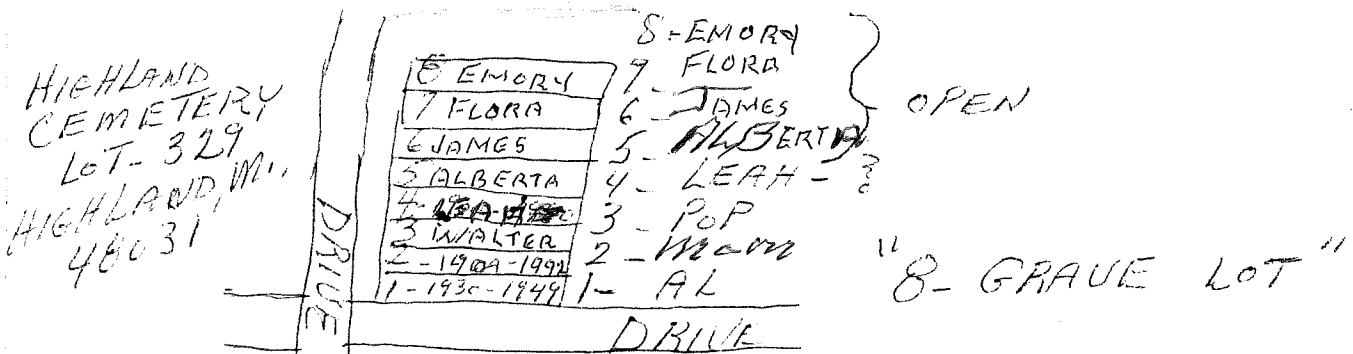 HIGHLAND
CEMETERY
LOT - 329
HIGHLAND, MI.,
48031
DRIVE
8 EMORY
7 FLORA
6 JAMES
5 ALBERTA
4-
3 WALTER
2 - 1909-1992
1 - 1930-1949
8 - EMORY
7 - FLORA
6 - JAMES
5 - ALBERTA
4 - LEAH - ?
3 - POP
2 - Mom
1 - AL
OPEN
"8 - GRAVE LOT"
DRIVE